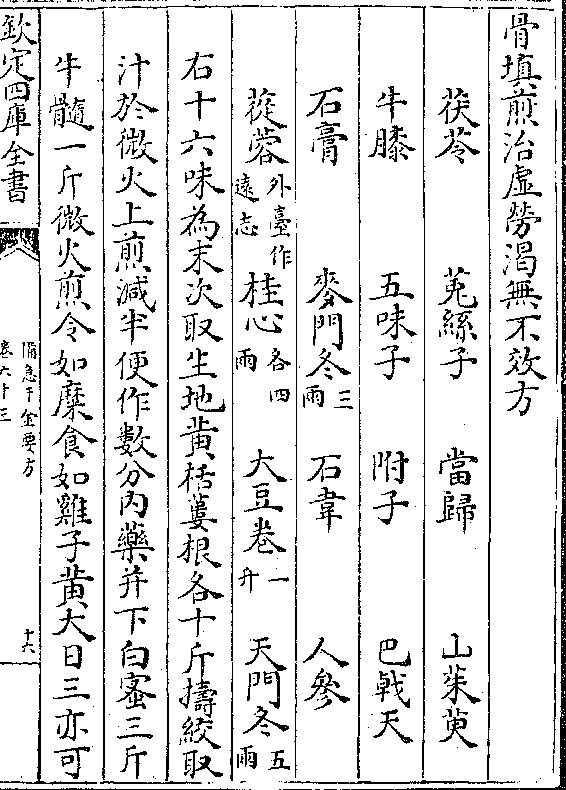 骨填煎治虛勞渴無不效方
茯苓 菟絲子 當歸 山茱萸
牛膝 五味子 附子 巴戟天
石膏 麥門冬三兩 石韋 人參
蓯蓉外臺作遠志 桂心各四兩 大豆卷一升 天門冬五兩
右十六味為末次取生地黃栝蔞根各十斤擣絞取
汁於微火上煎減半便作數分內藥并下白蜜三斤
牛髓一斤微火煎令如糜食如雞子黃大日三亦可
欽定四庫全書
備急千金要方
卷六十三
十六